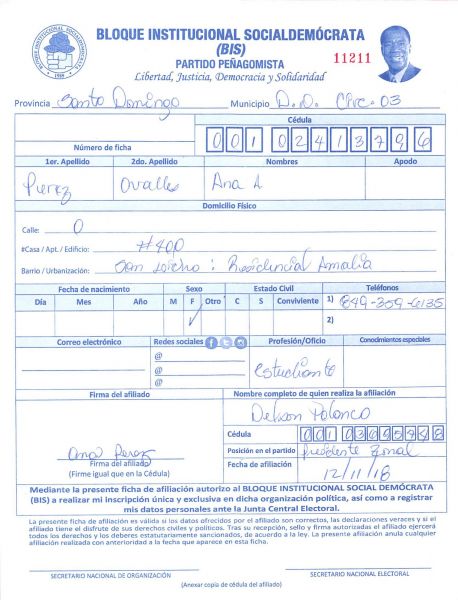 BLOQUE INSTITUCIONAL SOCIALDEMÓCRATA
(BIS)
PARTIDO PEÑAGOMISTA
11211
Libertad, Justicia, Democracia y Solidaridad
Provincia Santo Domingo Municipio D.D. Circ. 03
Cédula
Número de ficha 001 0241379 6
1er. Apellido 2do. Apellido Nombres Apodo
Perez Ovalles Ana A
Domicilio Físico
Calle: O
#Casa / Apt. / Edificio: #400
Barrio / Urbanización: San Isidro : Residencial Amalia
Fecha de nacimiento Sexo Estado Civil Teléfonos
Día Mes Año M F Otro C S Conviviente 1) 849-359-6135
2)
Correo electrónico Redes sociales Profesión/Oficio Conocimientos especiales
@
@
@
Estudiante
Firma del afiliado Nombre completo de quien realiza la afiliación
Delson Polanco
Cédula 001
Ana Perez
Posición en el partido Presidente Zonal
Firma del afiliado
(Firme igual que en la Cédula)
Fecha de afiliación 12/11/18
Mediante la presente ficha de afiliación autorizo al BLOQUE INSTITUCIONAL SOCIAL DEMÓCRATA
(BIS) a realizar mi inscripción única y exclusiva en dicha organización política, así como a registrar
mis datos personales ante la Junta Central Electoral.
La presente ficha de afiliación es válida si los datos ofrecidos por el afiliado son correctos, las declaraciones veraces y si el
afiliado tiene el disfrute de sus derechos civiles y políticos. Tras su recepción, sello y firma autorizadas el afiliado ejercerá
todos los derechos y los deberes estatutariamente sancionados, de acuerdo a la ley. La presente afiliación anula cualquier
afiliación realizada con anterioridad a la fecha que aparece en esta ficha.
SECRETARIO NACIONAL DE ORGANIZACIÓN SECRETARIO NACIONAL ELECTORAL
(Anexar copia de cédula del afiliado)